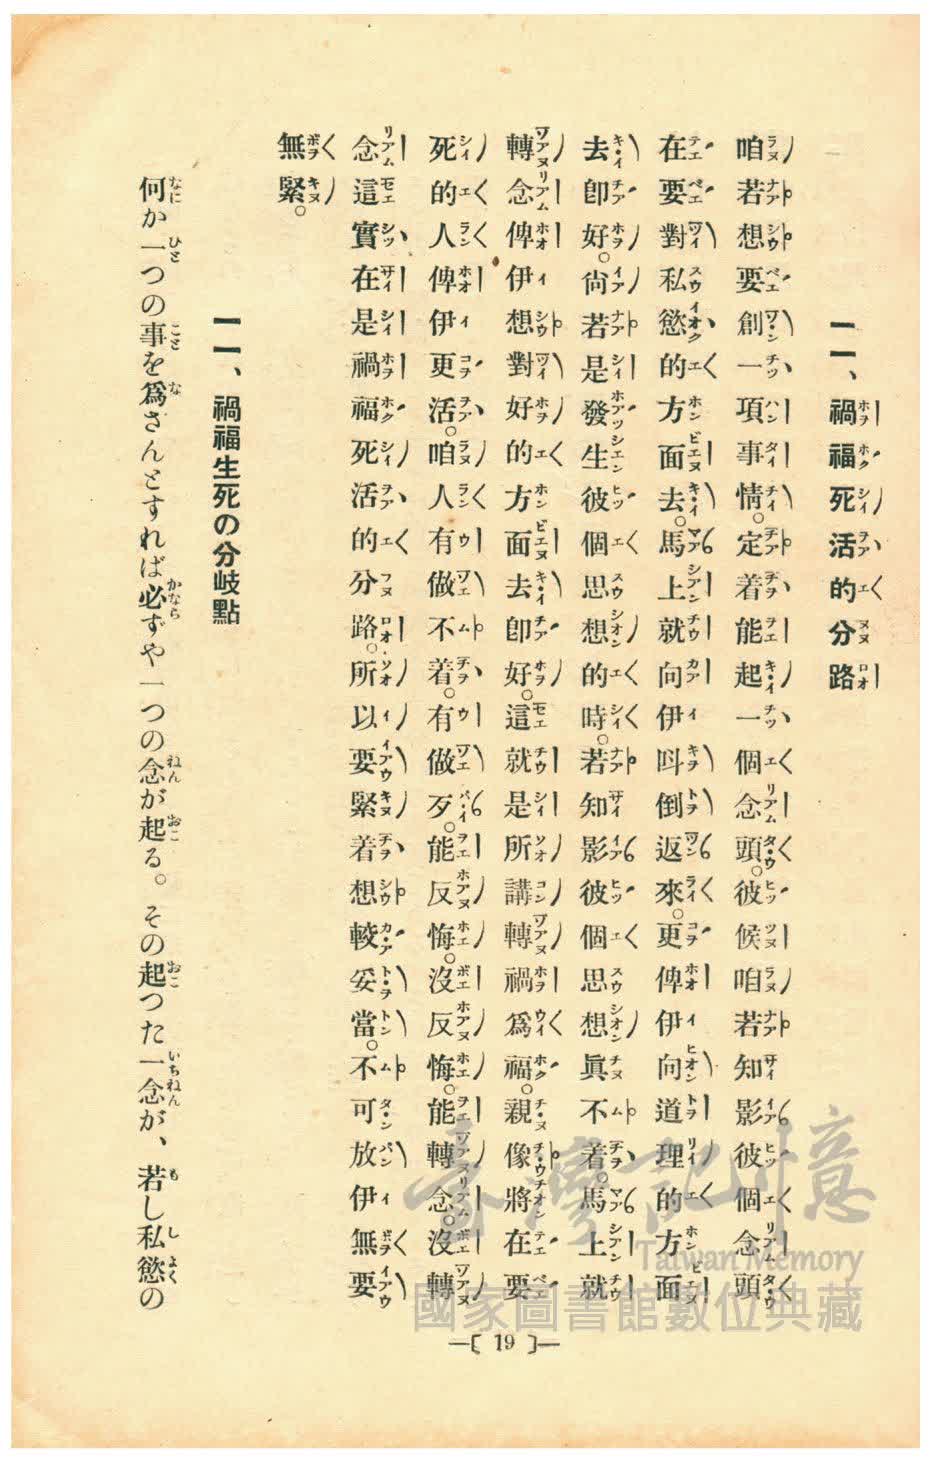 一一、禍福死活的分路
咱若想要創一項事情。定着能起一個念頭。彼候咱若知影彼個念頭
在要對私慾的方面去。馬上就向伊呌倒返來。更俾伊向道理的方面
去卽好。尙若是發生彼個思想的時。若知影彼個思想眞不着。馬上就
轉念俾伊想對好的方面去卽好。這就是所講轉禍爲福。親像將在要
死的人俾伊更活。咱人有做不着。有做歹。能反悔。沒反悔。能轉念。沒轉
念這實在是禍福死活的分路。所以要緊着想較妥當。不可放伊無要
無緊。
一一、禍福生死の分岐點
何か一つの事を爲さんとすれば必ずや一つの念が起る。その起つた一念が、若し私慾の
—〔 19 〕—
臺灣記憶
Taiwan Memory
國家圖書館數位典藏